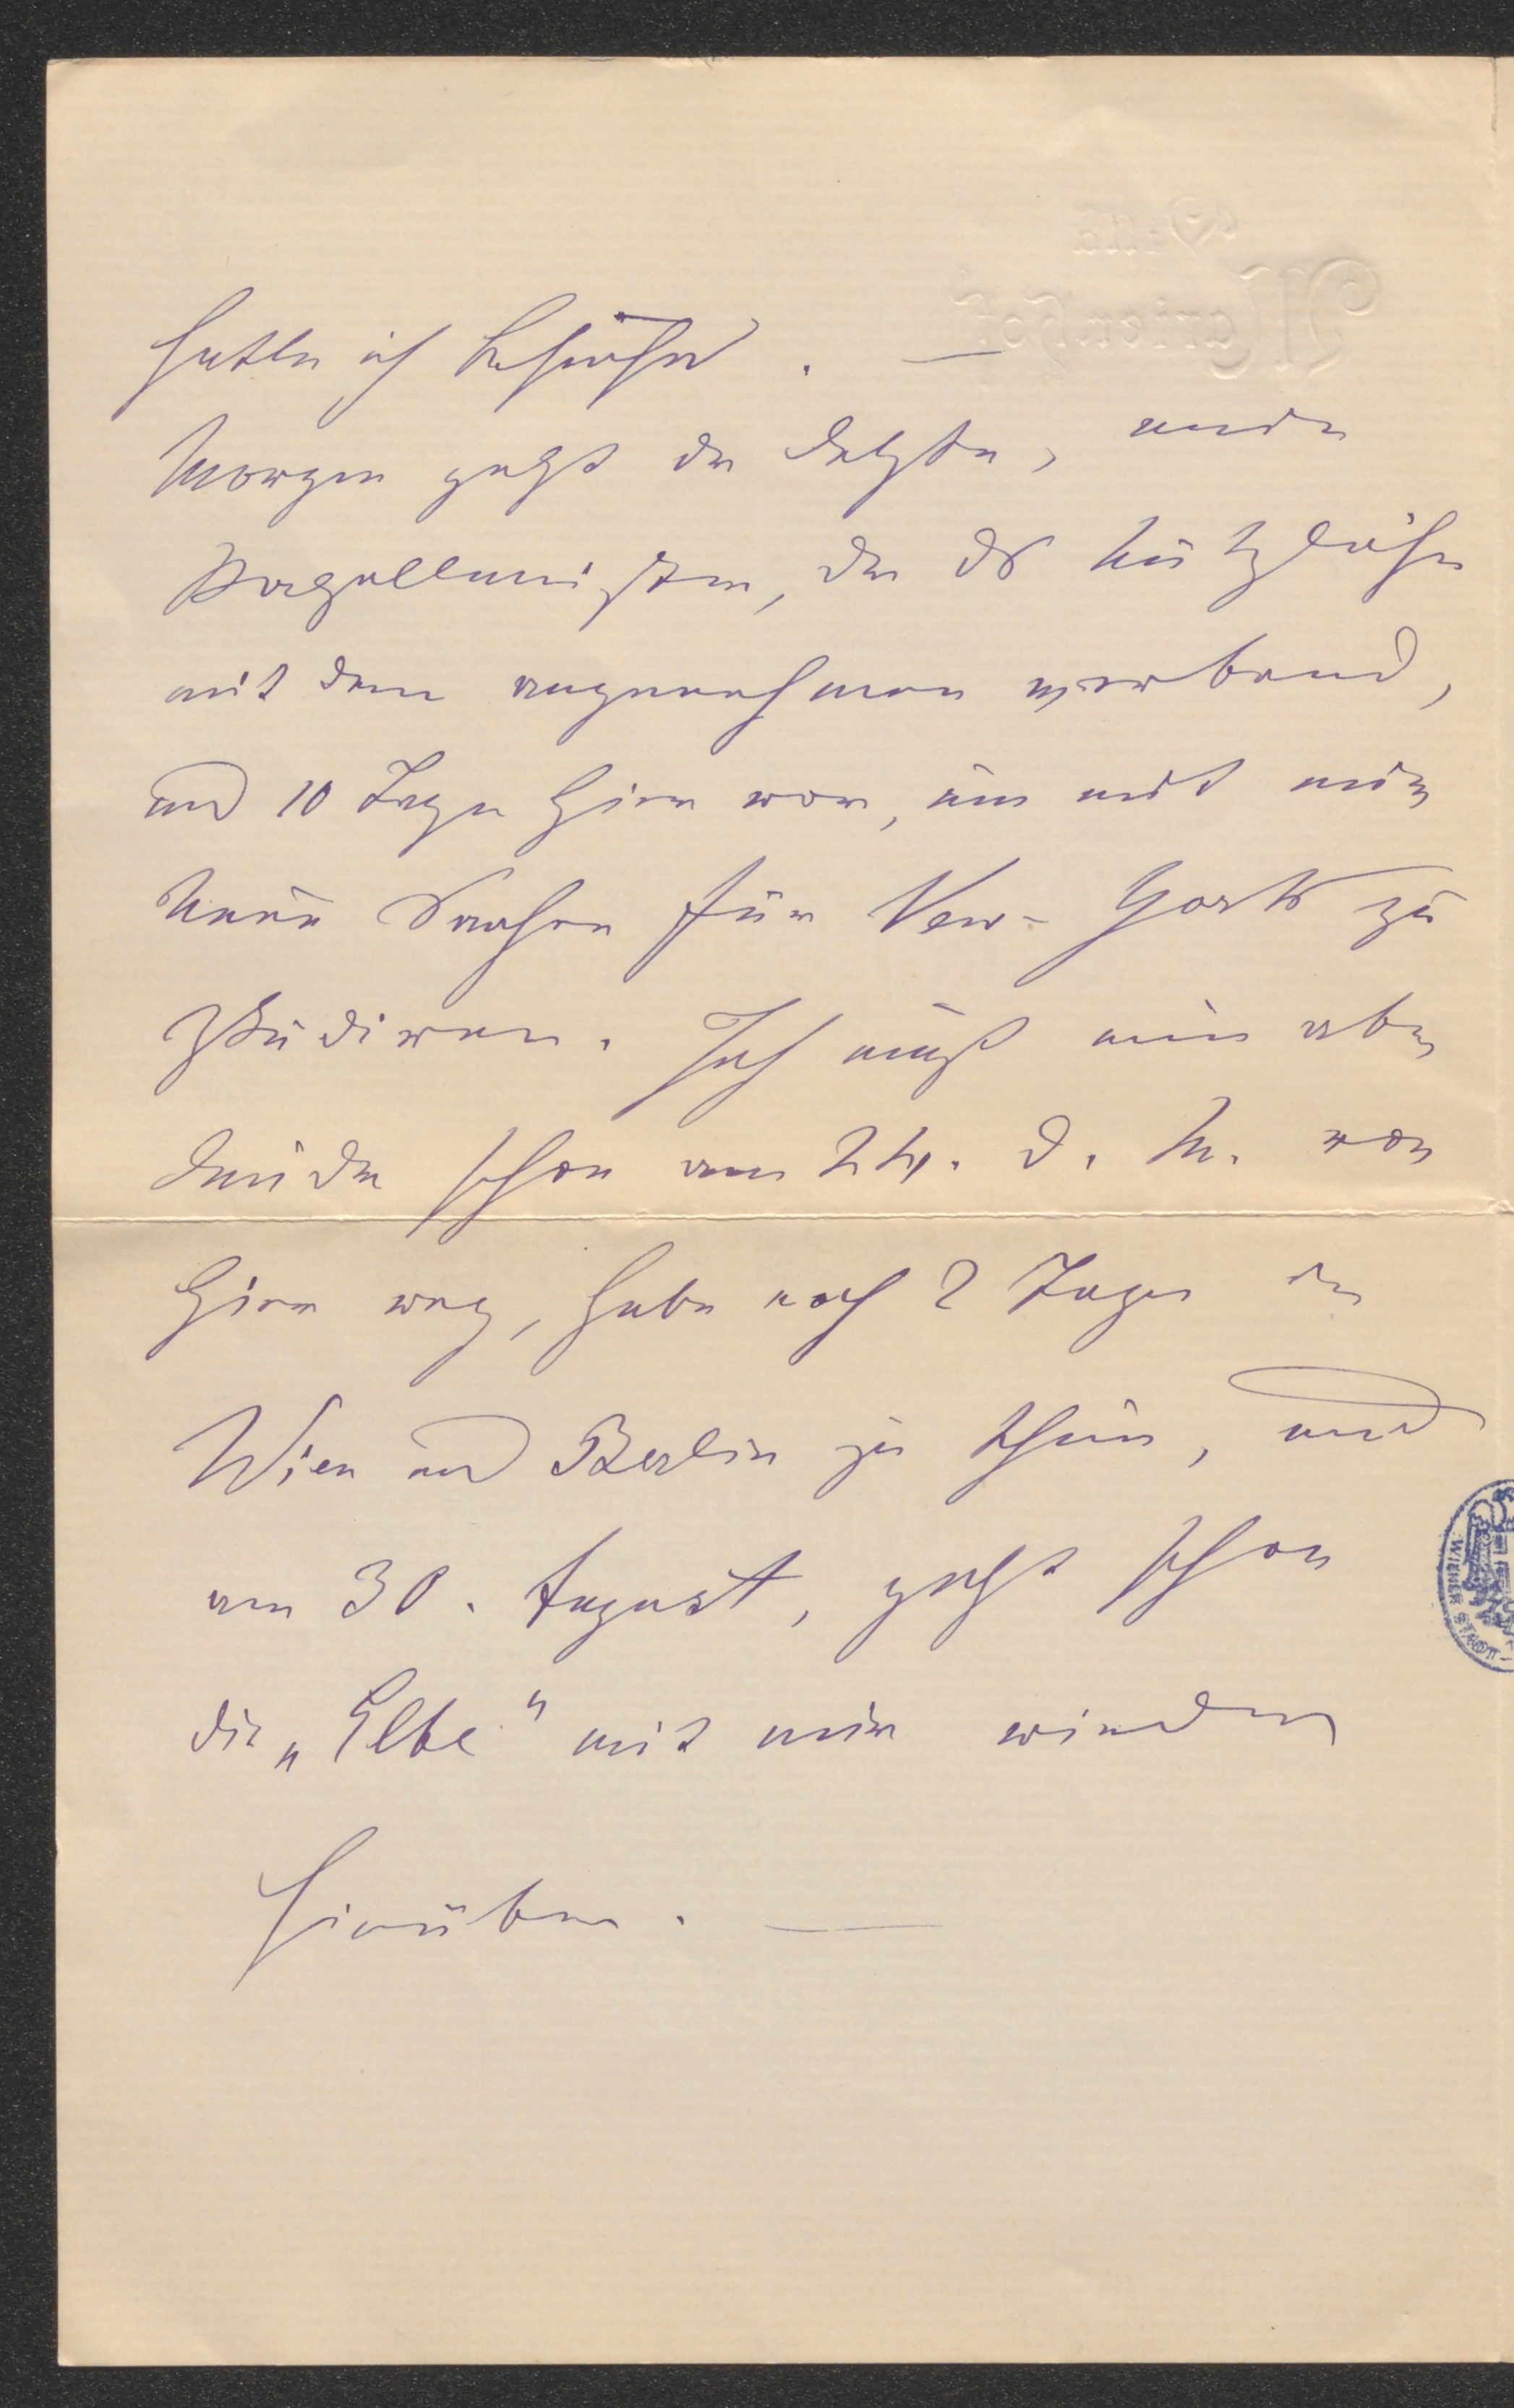 Villa
Marienhof
hatte ich Besuche. —
Morgen geht der Letzte, mein
Kapellmeister, der das Nützliche
mit dem angenehmen verband,
und 10 Tage hier war, um mit mir
neue Sachen für New-York zu
studiren. Ich muß nun aber
leider schon am 24. d. M. von
hier weg, habe noch 2 Tage in
Wien und Berlin zu thun, und
am 30. August, geht schon
die „Elbe" mit mir wieder
hinüber. —
WIENER STADT-